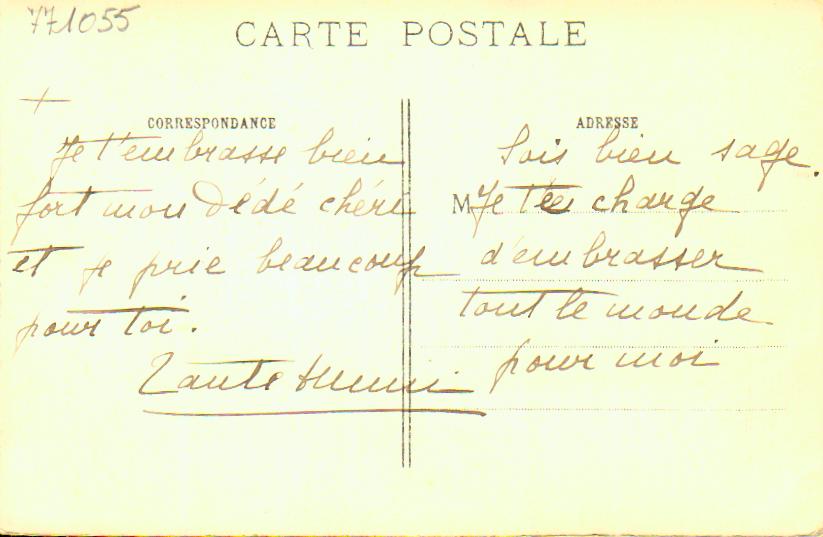 771055
CARTE POSTALE
+
CORRESPONDANCE
Je t'embrasse bien
fort mon Dédé chéri
et je prie beaucoup
pour toi.
Tante
ADRESSE
Sois bien sage.
M Je te charge
d'embrasser
tout le monde
pour moi